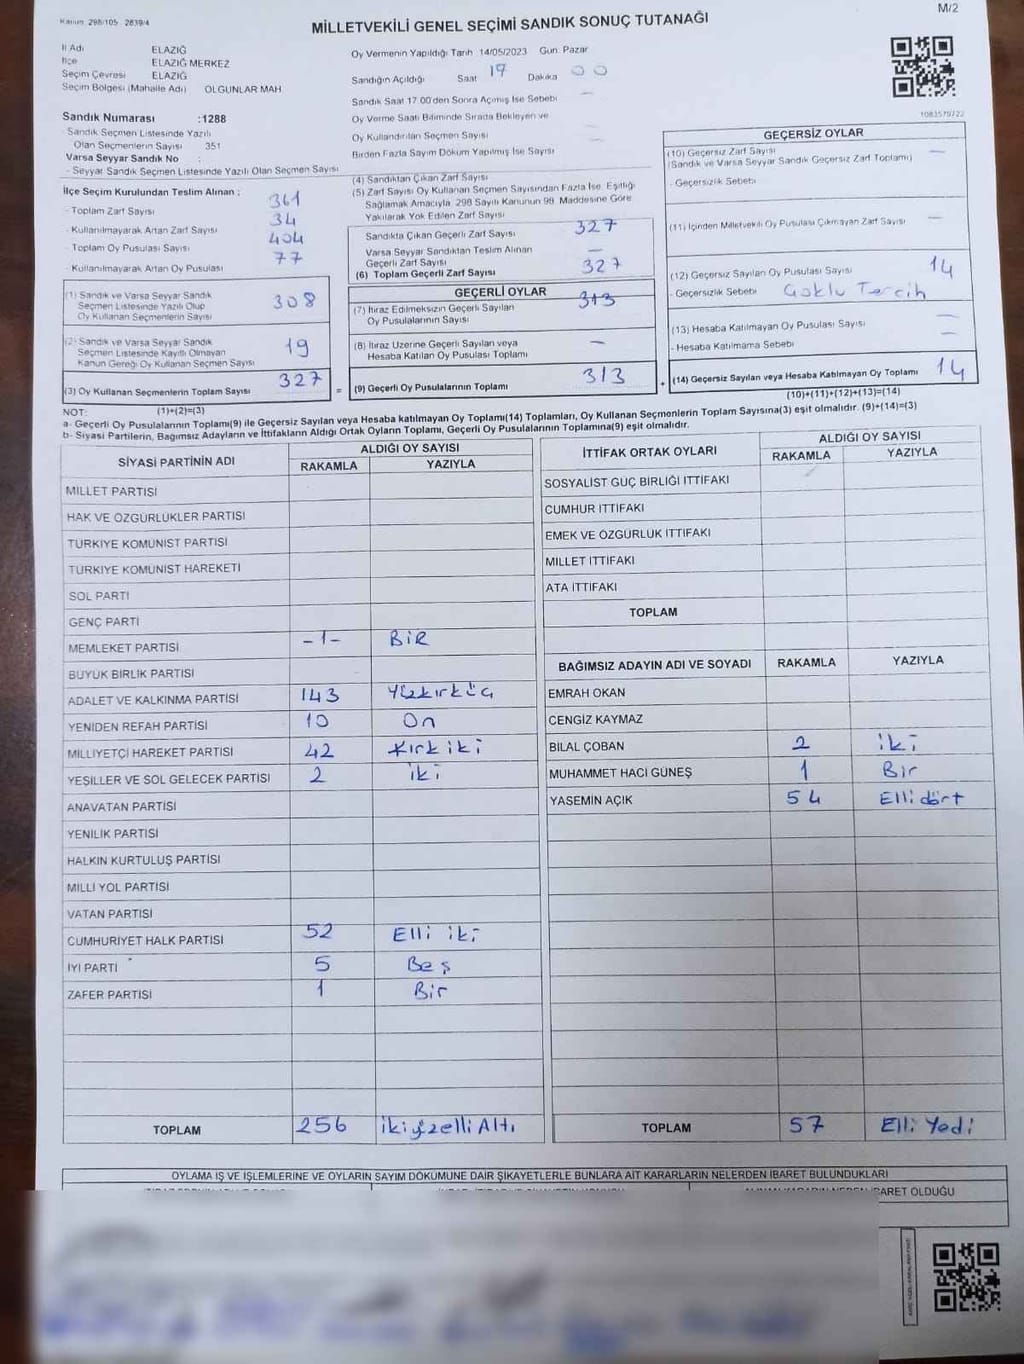 Kanun 298/105 - 2839/4
M/2
MİLLETVEKİLİ GENEL SEÇİMİ SANDIK SONUÇ TUTANAĞI
İl Adı ELAZIĞ
İlçe ELAZIĞ MERKEZ
Seçim Çevresi ELAZIĞ
Seçim Bölgesi (Mahalle Adı) OLGUNLAR MAH
Sandık Numarası :1288
- Sandık Seçmen Listesinde Yazılı
Olan Seçmenlerin Sayısı 351
Varsa Seyyar Sandık No :
- Seyyar Sandık Seçmen Listesinde Yazılı Olan Seçmen Sayısı
Oy Vermenin Yapıldığı Tarih 14/05/2023 Gün Pazar
Sandığın Açıldığı Saat 17 Dakika 00
Sandık Saat 17.00'den Sonra Açımış İse Sebebi —
Oy Verme Saati Bitiminde Sırada Bekleyen ve
Oy Kullandırılan Seçmen Sayısı —
Birden Fazla Sayım Döküm Yapılmış İse Sayısı —
1083579722
İlçe Seçim Kurulundan Teslim Alınan ;
- Toplam Zarf Sayısı 361
- Kullanılmayarak Artan Zarf Sayısı 34
- Toplam Oy Pusulası Sayısı 404
- Kullanılmayarak Artan Oy Pusulası 77
(1) Sandık ve Varsa Seyyar Sandık
Seçmen Listesinde Yazılı Olup
Oy Kullanan Seçmenlerin Sayısı 308
(2) Sandık ve Varsa Seyyar Sandık
Seçmen Listesinde Kayıtlı Olmayan
Kanun Gereği Oy Kullanan Seçmen Sayısı 19
(3) Oy Kullanan Seçmenlerin Toplam Sayısı 327
(1)+(2)=(3)
(4) Sandıktan Çıkan Zarf Sayısı
(5) Zarf Sayısı Oy Kullanan Seçmen Sayısından Fazla İse, Eşitliği
Sağlamak Amacıyla, 298 Sayılı Kanunun 98. Maddesine Göre
Yakılarak Yok Edilen Zarf Sayısı
Sandıkta Çıkan Geçerli Zarf Sayısı 327
Varsa Seyyar Sandıktan Teslim Alınan
Geçerli Zarf Sayısı —
(6) Toplam Geçerli Zarf Sayısı 327
GEÇERLİ OYLAR
(7) İtiraz Edilmeksizin Geçerli Sayılan
Oy Pusulalarının Sayısı 313
(8) İtiraz Üzerine Geçerli Sayılan veya
Hesaba Katılan Oy Pusulası Toplamı —
= (9) Geçerli Oy Pusulalarının Toplamı 313
GEÇERSİZ OYLAR
(10) Geçersiz Zarf Sayısı —
(Sandık ve Varsa Seyyar Sandık Geçersiz Zarf Toplamı)
- Geçersizlik Sebebi
(11) İçinden Milletvekili Oy Pusulası Çıkmayan Zarf Sayısı —
(12) Geçersiz Sayılan Oy Pusulası Sayısı 14
- Geçersizlik Sebebi Çoklu Tercih
(13) Hesaba Katılmayan Oy Pusulası Sayısı —
- Hesaba Katılmama Sebebi —
+ (14) Geçersiz Sayılan veya Hesaba Katılmayan Oy Toplamı 14
(10)+(11)+(12)+(13)=(14)
NOT:
a- Geçerli Oy Pusulalarının Toplamı(9) ile Geçersiz Sayılan veya Hesaba katılmayan Oy Toplamı(14) Toplamları, Oy Kullanan Seçmenlerin Toplam Sayısına(3) eşit olmalıdır. (9)+(14)=(3)
b- Siyasi Partilerin, Bağımsız Adayların ve İttifakların Aldığı Ortak Oyların Toplamı, Geçerli Oy Pusulalarının Toplamına(9) eşit olmalıdır.
SİYASİ PARTİNİN ADI ALDIĞI OY SAYISI
RAKAMLA YAZIYLA
MİLLET PARTİSİ
HAK VE ÖZGÜRLÜKLER PARTİSİ
TÜRKİYE KOMÜNİST PARTİSİ
TÜRKİYE KOMÜNİST HAREKETİ
SOL PARTİ
GENÇ PARTİ
MEMLEKET PARTİSİ -1- BİR
BÜYÜK BİRLİK PARTİSİ
ADALET VE KALKINMA PARTİSİ 143 Yüzkırküç
YENİDEN REFAH PARTİSİ 10 On
MİLLİYETÇİ HAREKET PARTİSİ 42 Kırk iki
YEŞİLLER VE SOL GELECEK PARTİSİ 2 iki
ANAVATAN PARTİSİ
YENİLİK PARTİSİ
HALKIN KURTULUŞ PARTİSİ
MİLLİ YOL PARTİSİ
VATAN PARTİSİ
CUMHURİYET HALK PARTİSİ 52 Elli iki
İYİ PARTİ 5 Beş
ZAFER PARTİSİ 1 Bir
TOPLAM 256 ikiyüzelli Altı
İTTİFAK ORTAK OYLARI ALDIĞI OY SAYISI
RAKAMLA YAZIYLA
SOSYALİST GÜÇ BİRLİĞİ İTTİFAKI
CUMHUR İTTİFAKI
EMEK VE ÖZGÜRLÜK İTTİFAKI
MİLLET İTTİFAKI
ATA İTTİFAKI
TOPLAM
BAĞIMSIZ ADAYIN ADI VE SOYADI RAKAMLA YAZIYLA
EMRAH OKAN
CENGİZ KAYMAZ
BİLAL ÇOBAN 2 iki
MUHAMMET HACİ GÜNEŞ 1 Bir
YASEMİN AÇIK 54 Elli dört
TOPLAM 57 Elli Yedi
OYLAMA İŞ VE İŞLEMLERİNE VE OYLARIN SAYIM DÖKÜMÜNE DAİR ŞİKAYETLERLE BUNLARA AİT KARARLARIN NELERDEN İBARET BULUNDUKLARI
İBARET OLDUĞU